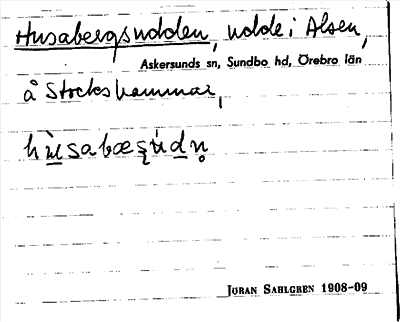 Husabergsudden, udde i Alsen,
Askersunds sn, Sundbo hd, Örebro län
å Stockshammar,
JÖRAN SAHLGREN 1908-09